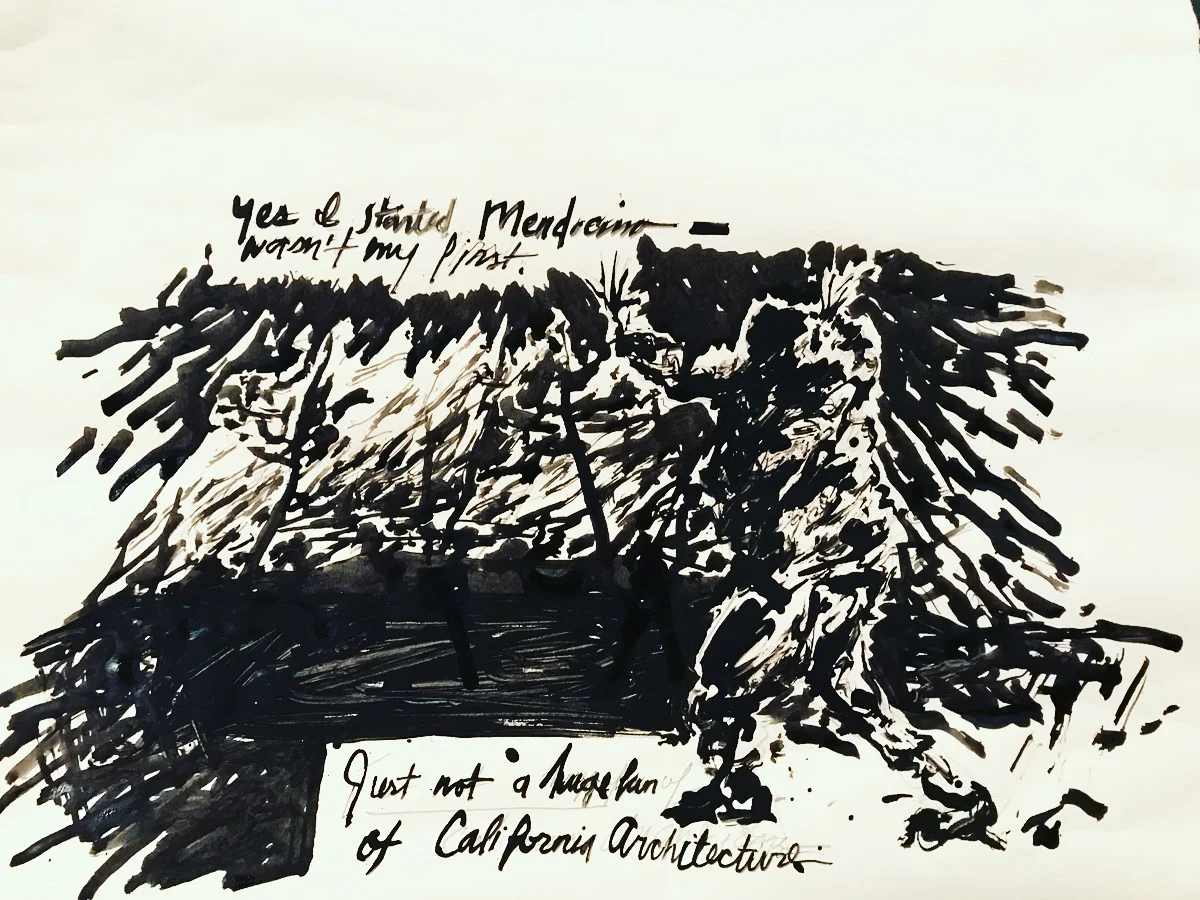 Yes I started Mendicino —
wasn't my first.
Just not a huge fan
of California Architecture.